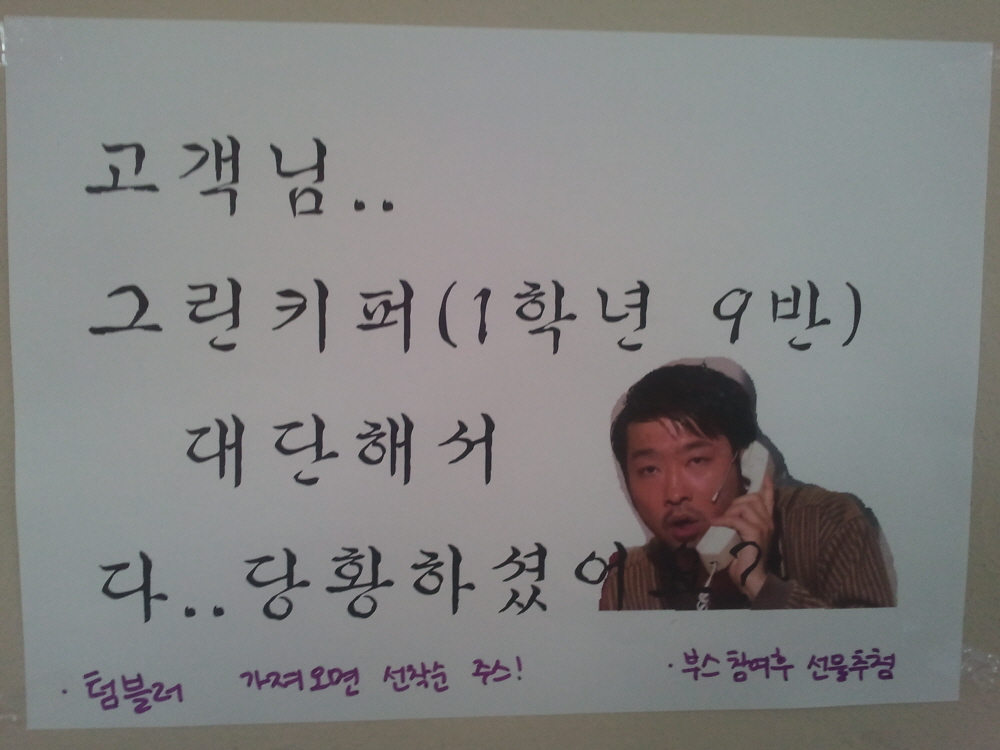 고객님..
그린키퍼(1학년 9반)
대단해서
다..당황하셨어요?
· 텀블러 가져오면 선착순 주스!
· 부스참여후 선물추첨